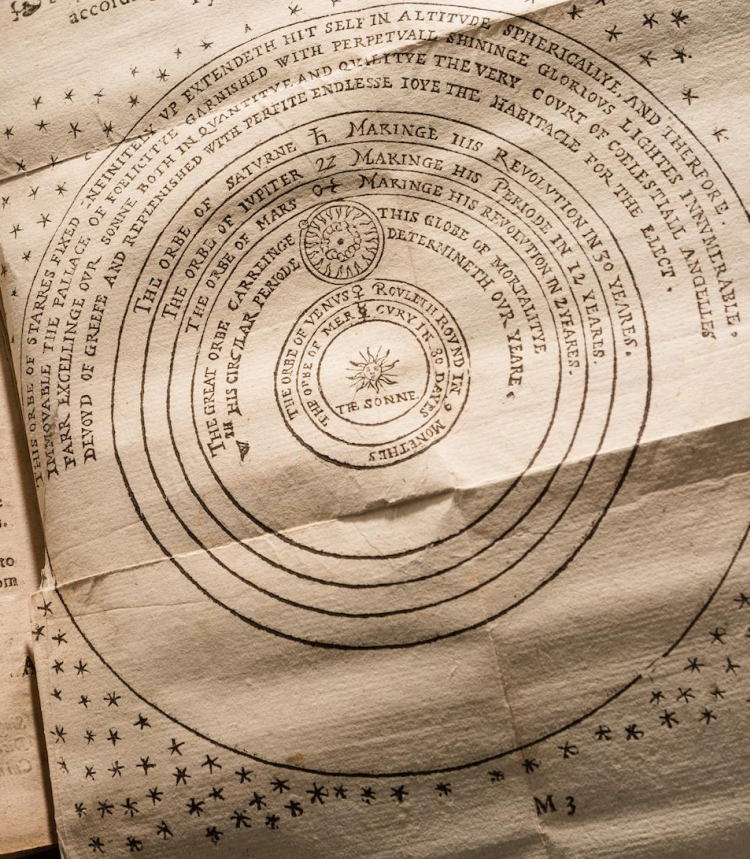 accord
THIS ORBE OF STARRES FIXED INFINITELY VP EXTENDETH HIT SELF IN ALTITVDE SPHERICALLYE, AND THERFORE
IMMOVABLE THE PALLACE OF FOELICITYE GARNISHED WITH PERPETVALL SHININGE GLORIOVS LIGHTES INNVMERABLE,
FARR EXCELLINGE OVR SONNE BOTH IN QVANTITYE AND QVALITYE THE VERY COVRT OF COELESTIALL ANGELLES
DEVOYD OF GREEFE AND REPLENISHED WITH PERFITE ENDLESSE IOYE THE HABITACLE FOR THE ELECT.
THE ORBE OF SATVRNE ♄ MAKINGE HIS REVOLUTION IN 30 YEARES.
THE ORBE OF IVPITER ♃ MAKINGE HIS PERIODE IN 12 YEARES.
THE ORBE OF MARS ♂ MAKINGE HIS REVOLUTION IN 2 YEARES.
THE GREAT ORBE CARREINGE THIS GLOBE OF MORTALITYE
HIS CIRCVLAR PERIODE DETERMINETH OVR YEARE.
THE ORBE OF VENVS ♀ ROVLETH ROVND IN 9 MONETHES
THE ORBE OF MER ☿ CVRY IN 80 DAYES
THE SONNE.
M 3
to
om